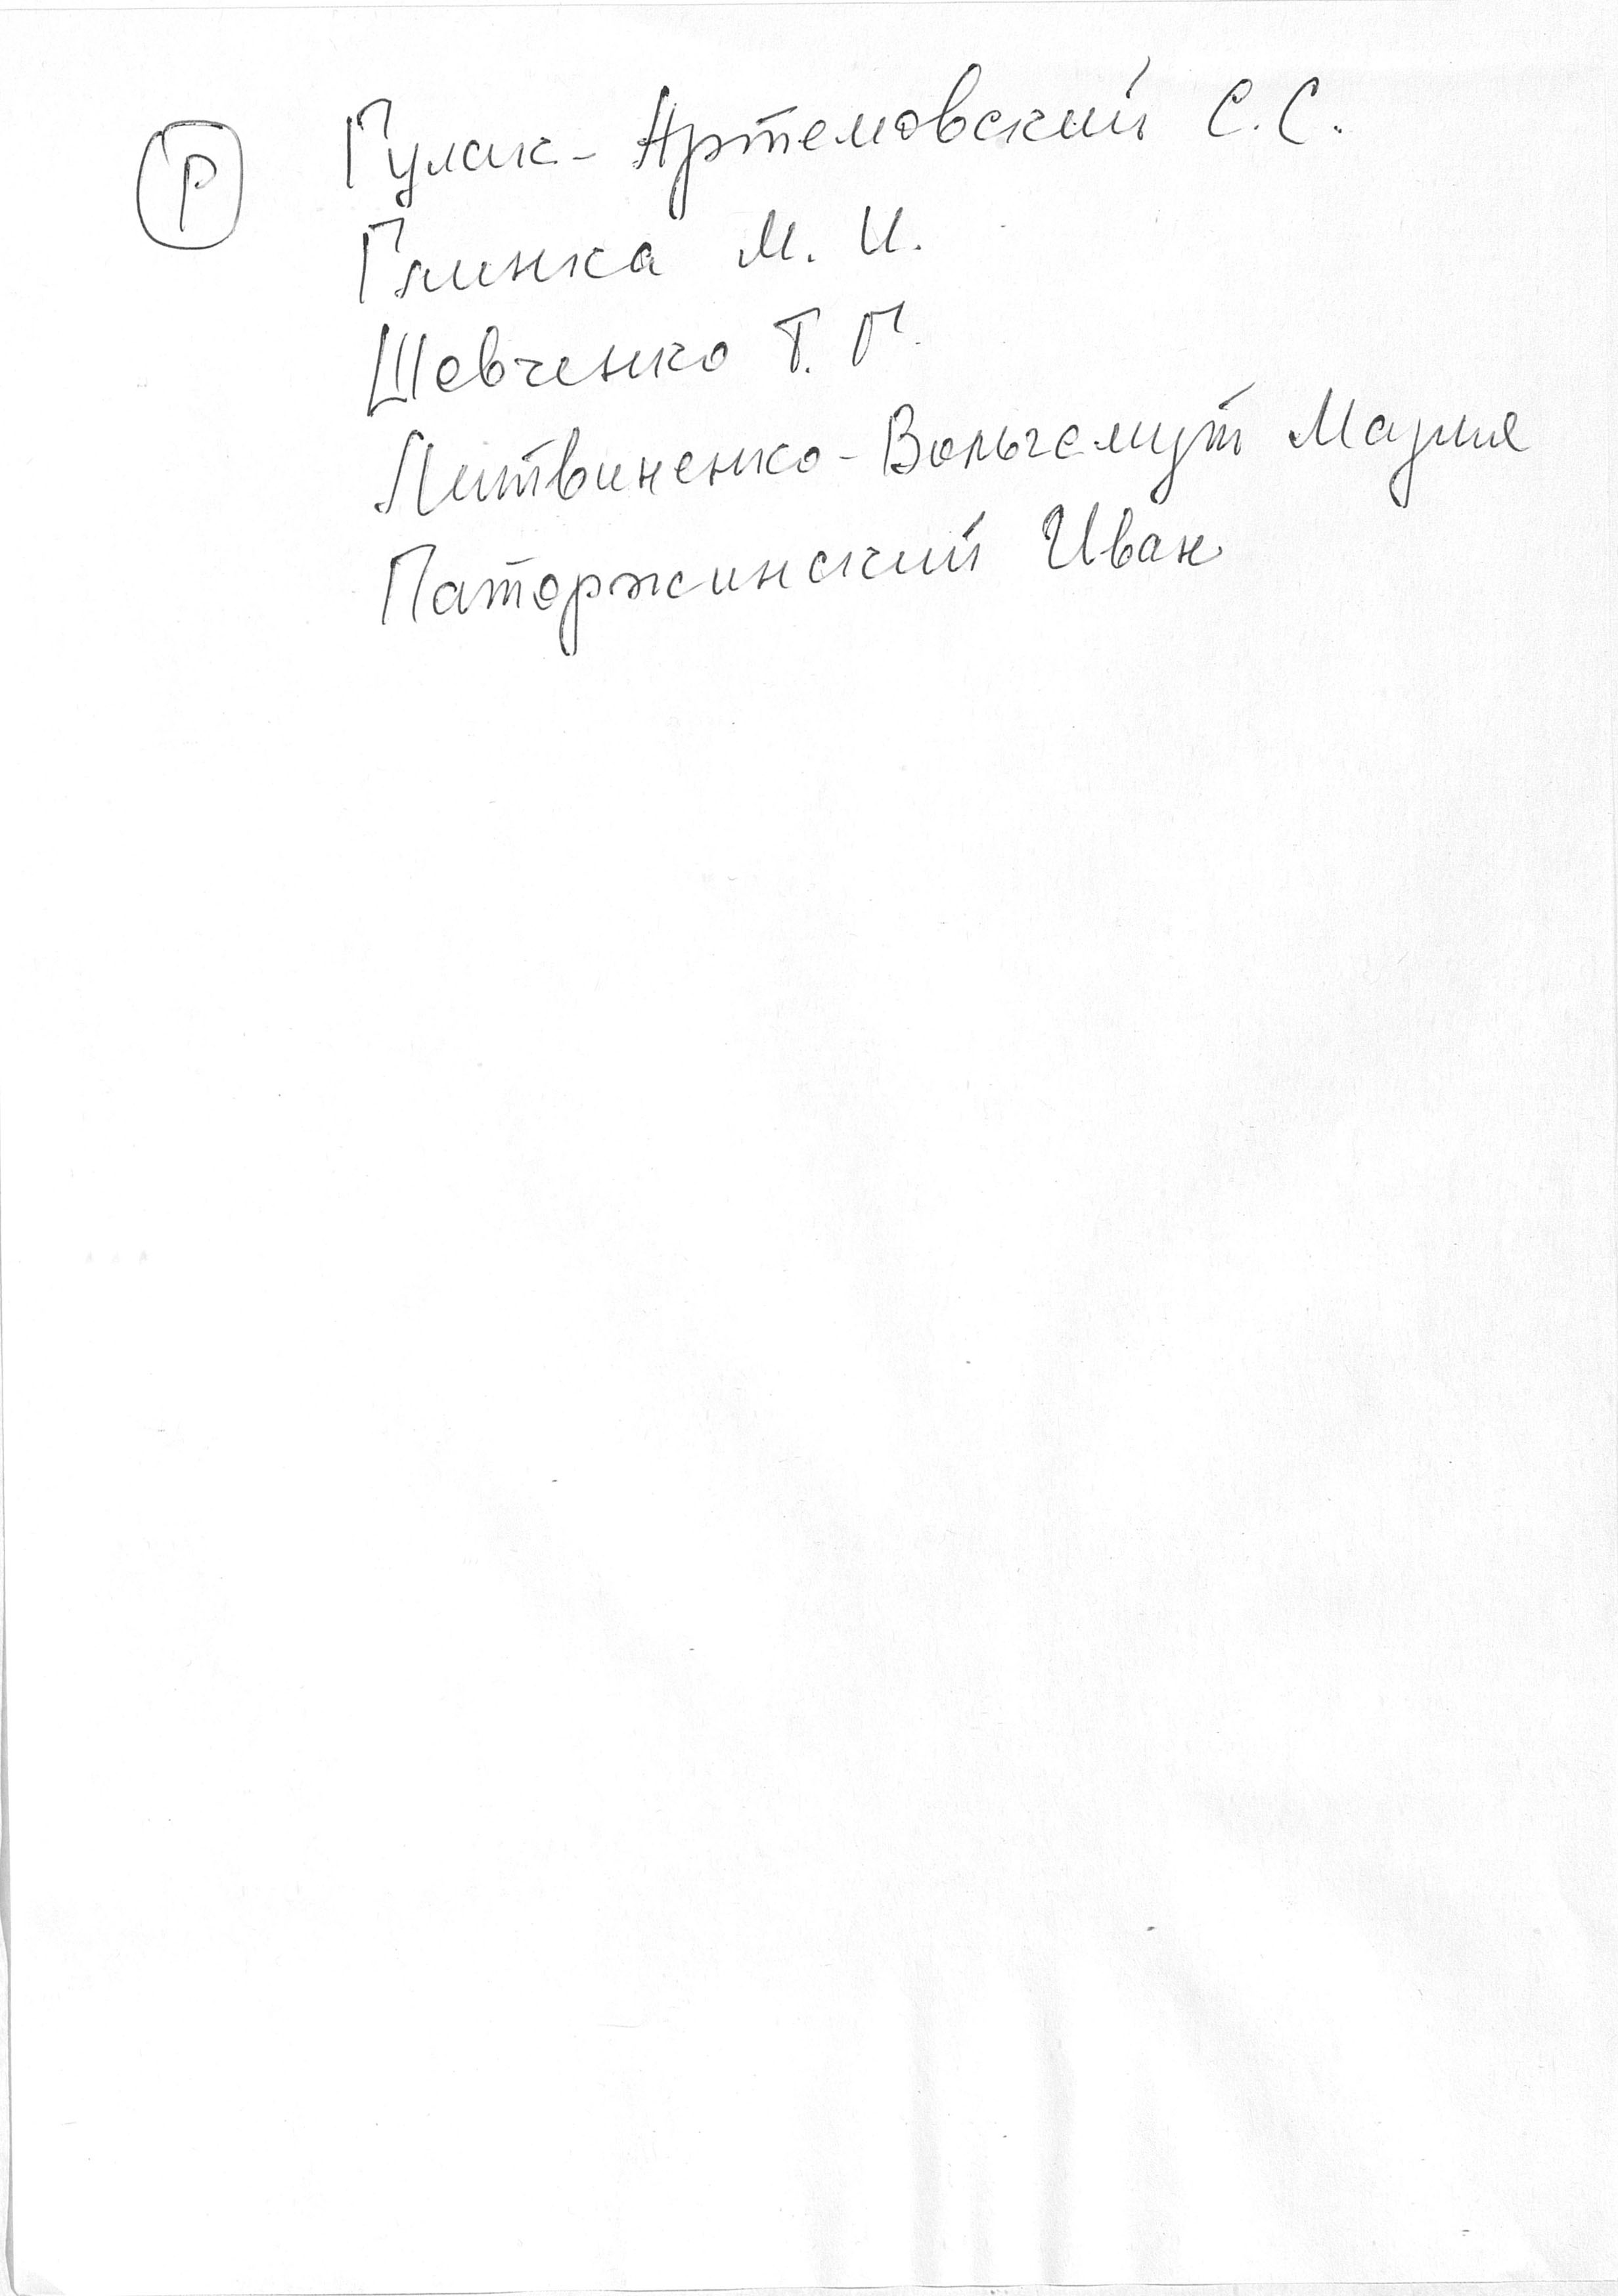 Р Гулак-Артемовский С.С.
Глинка М. И.
Шевченко Т. Г.
Литвиненко-Вольгемут Мария
Паторжинский Иван